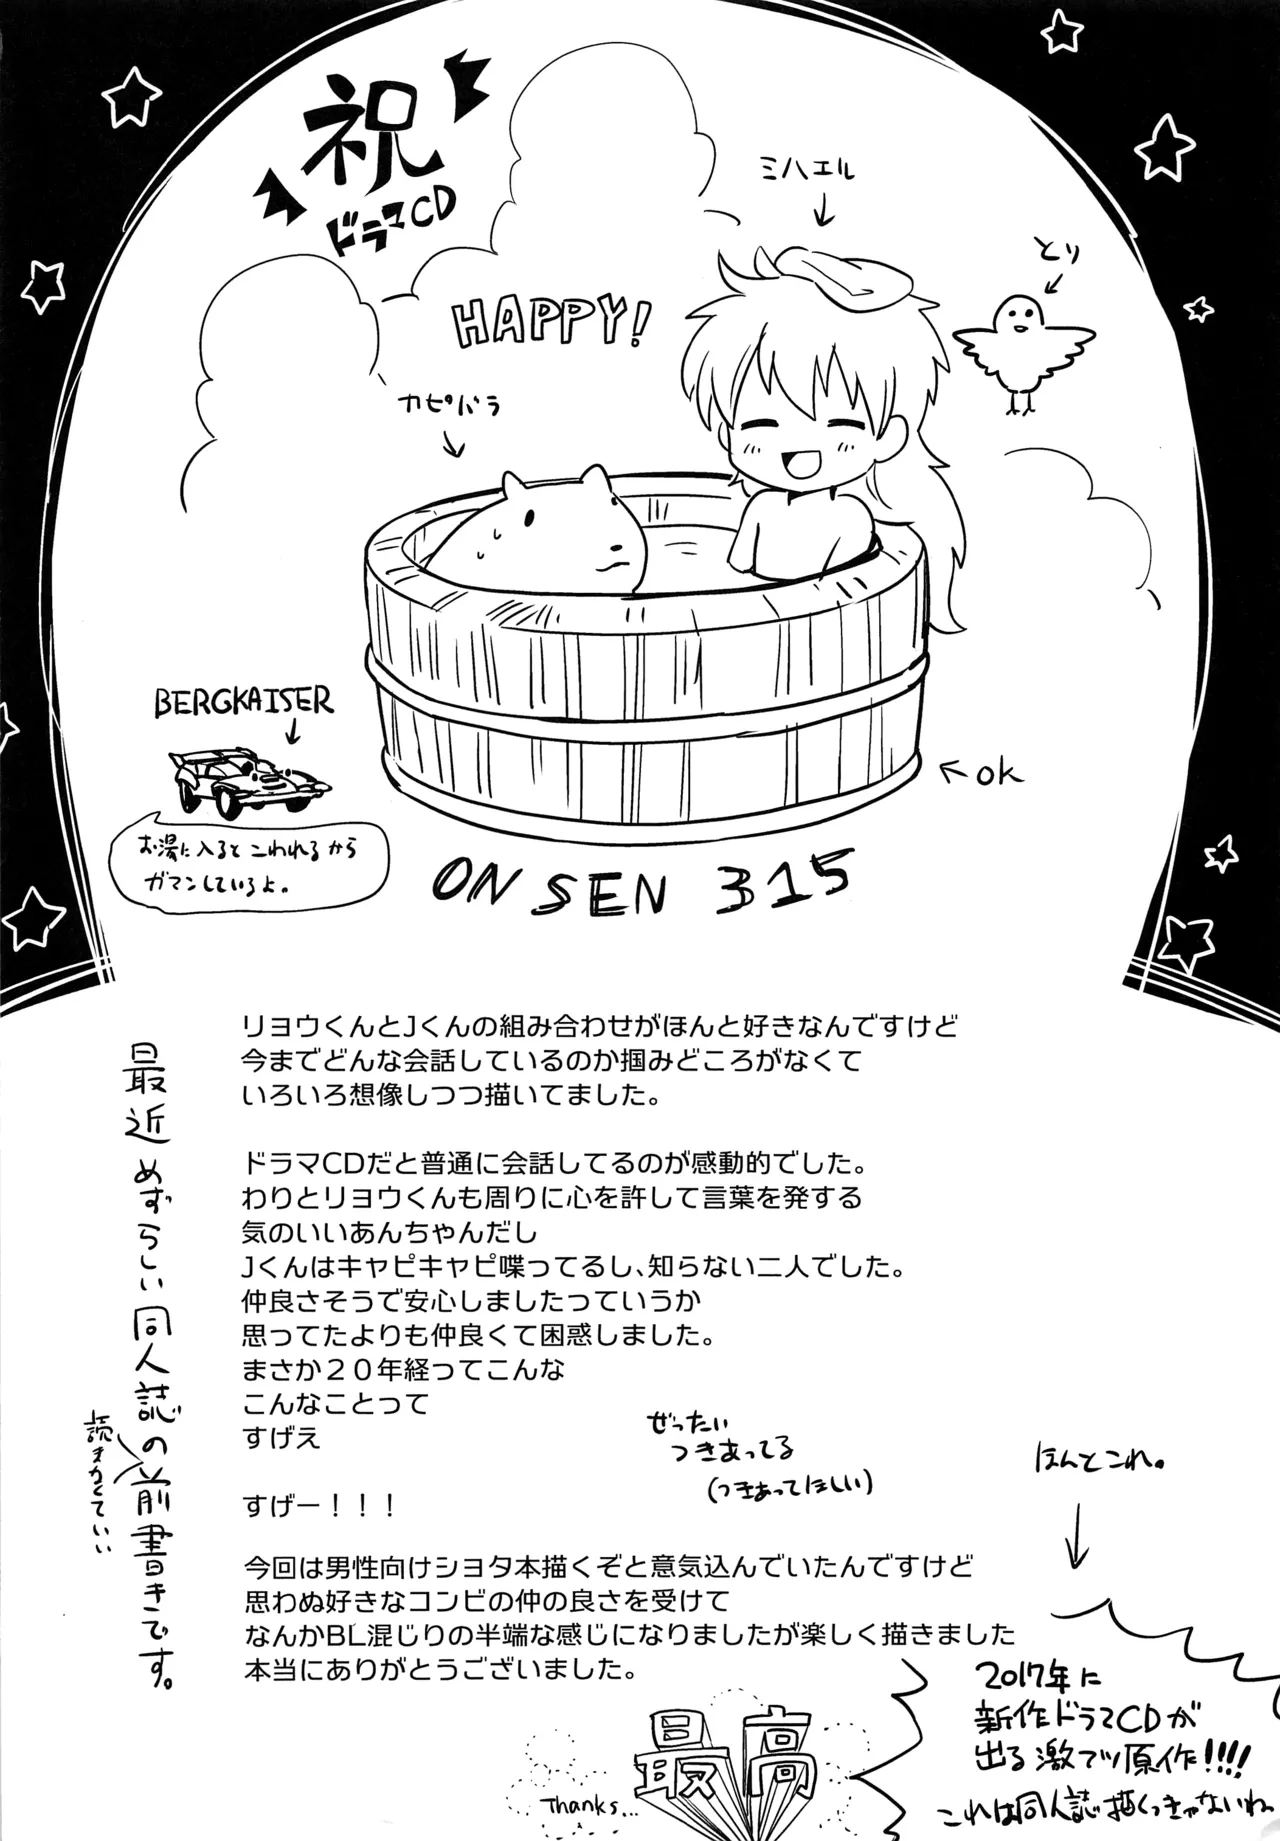 祝
ドラマCD
ミハエル
とり
HAPPY!
カピバラ
BERGKAISER
お湯に入ると こわれるから
ガマンしているよ。
←OK
ONSEN 315
最近めずらしい同人誌の前書きです。
読まなくていい
リョウくんとJくんの組み合わせがほんと好きなんですけど
今までどんな会話しているのか掴みどころがなくて
いろいろ想像しつつ描いてました。
ドラマCDだと普通に会話してるのが感動的でした。
わりとリョウくんも周りに心を許して言葉を発する
気のいいあんちゃんだし
Jくんはキャピキャピ喋ってるし、知らない二人でした。
仲良さそうで安心しましたっていうか
思ってたよりも仲良くて困惑しました。
まさか２０年経ってこんな
こんなことって
すげえ
ぜったい
つきあってる
(つきあってほしい)
ほんとこれ。
すげー！！！
今回は男性向けショタ本描くぞと意気込んでいたんですけど
思わぬ好きなコンビの仲の良さを受けて
なんかBL混じりの半端な感じになりましたが楽しく描きました
本当にありがとうございました。
Thanks...
最高
2017年に
新作ドラマCDが
出る激アツ原作!!!!
これは同人誌描くっきゃないね